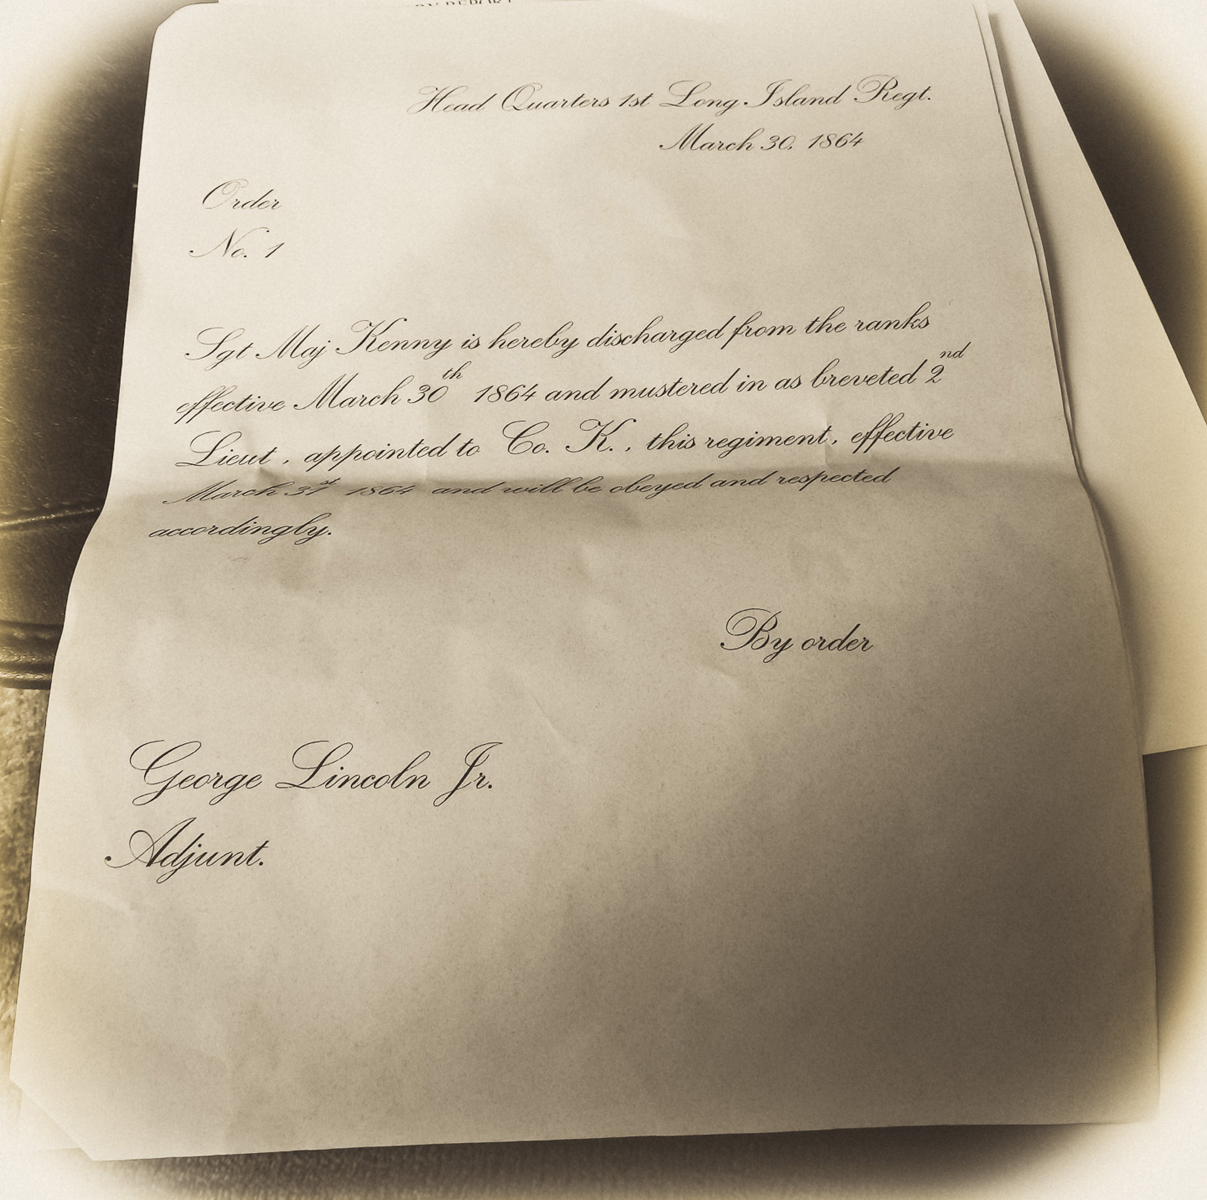 Head Quarters 1st Long Island Regt.
March 30, 1864
Order
No. 1
Sgt Maj Kenny is hereby discharged from the ranks
effective March 30th 1864 and mustered in as breveted 2nd
Lieut , appointed to Co. K. , this regiment , effective
March 31st 1864 and will be obeyed and respected
accordingly.
By order
George Lincoln Jr.
Adjunt.